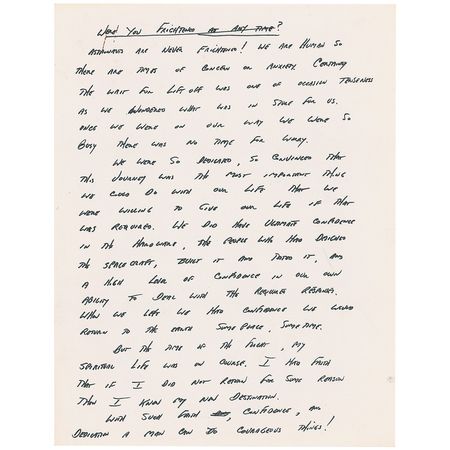 Were You Frightened at Any Time?
Astronauts are never frightened! We are human so
there are times of concern or anxiety. Certainly
the wait for liftoff was one of occasion tenseness
as we wondered what was in store for us.
Once we were on our way we were so
busy there was no time for worry.
We were so dedicated, so convinced that
this journey was the most important thing
we could do with our life that we
were willing to give our life if that
was required. We did have ultimate confidence
in the hardware, the people who had designed
the spacecraft, built it and tested it, and
a high level of confidence in our own
ability to deal with the required responses.
When we left we had confidence we would
return to the earth some place, some time.
But the time of the flight, my
spiritual life was on course. I had faith
that if I did not return for some reason
then I knew my new destination.
With such faith, confidence, and
dedication a man can do courageous things!